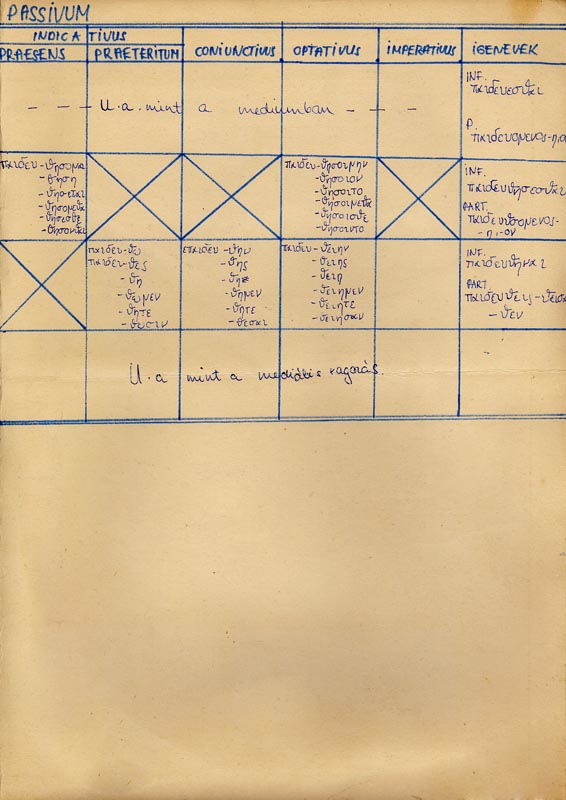 PASSIVUM
INDICATIVUS
PRAESENS PRAETERITUM CONIUNCTIVUS OPTATIVUS IMPERATIVUS IGENEVEK
- - - U.a. mint a mediumban - - -
INF.
παιδευεσθαι
P.
παιδευομενος-η,ο
παιδευ-θησομαι
-θηση
-θησεται
-θησομεθα
-θησεσθε
-θησονται
παιδευ-θησοιμην
-θησοιο
-θησοιτο
-θησοιμεθα
-θησοισθε
-θησοιντο
INF.
παιδευθησεσθαι
PART.
παιδευθησομενος-
-η,-ον
παιδευ-θω
παιδευ-θες
-θη
-θωμεν
-θητε
-θωσιν
επαιδευ-θην
-θης
-θη
-θημεν
-θητε
-θεσαν
παιδευ-θειην
-θειης
-θειη
-θειημεν
-θειητε
-θειησαν
INF.
παιδευθηναι
PART.
παιδευθεις-θεισα
-θεν
U.a mint a mediális ragozás.